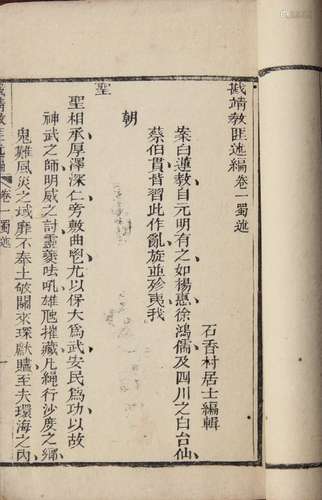 戡靖教匪述編卷一蜀述
石香村居士編輯
案白蓮教自元明有之如楊惠徐鴻儒及四川之白台仙
蔡伯貫皆習此作亂旋並殄夷我
朝
聖
聖相承厚澤深仁旁敷曲鬯尤以保大為武安民為功以故
神武之師明威之討靈夔呿吼雄虺摧藏凡繩行沙度之鄉
鬼難風災之域靡不奉土破關來琛獻贐至夫環海之內
戡靖教匪述編 卷一蜀述 一